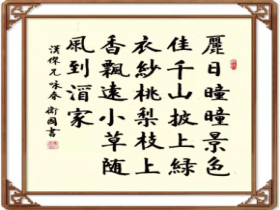 麗日曈曈景色
佳千山披上緑
衣紗桃梨枝上
香飄遠小草随
風到酒家
漢傑兄咏春 衛國書